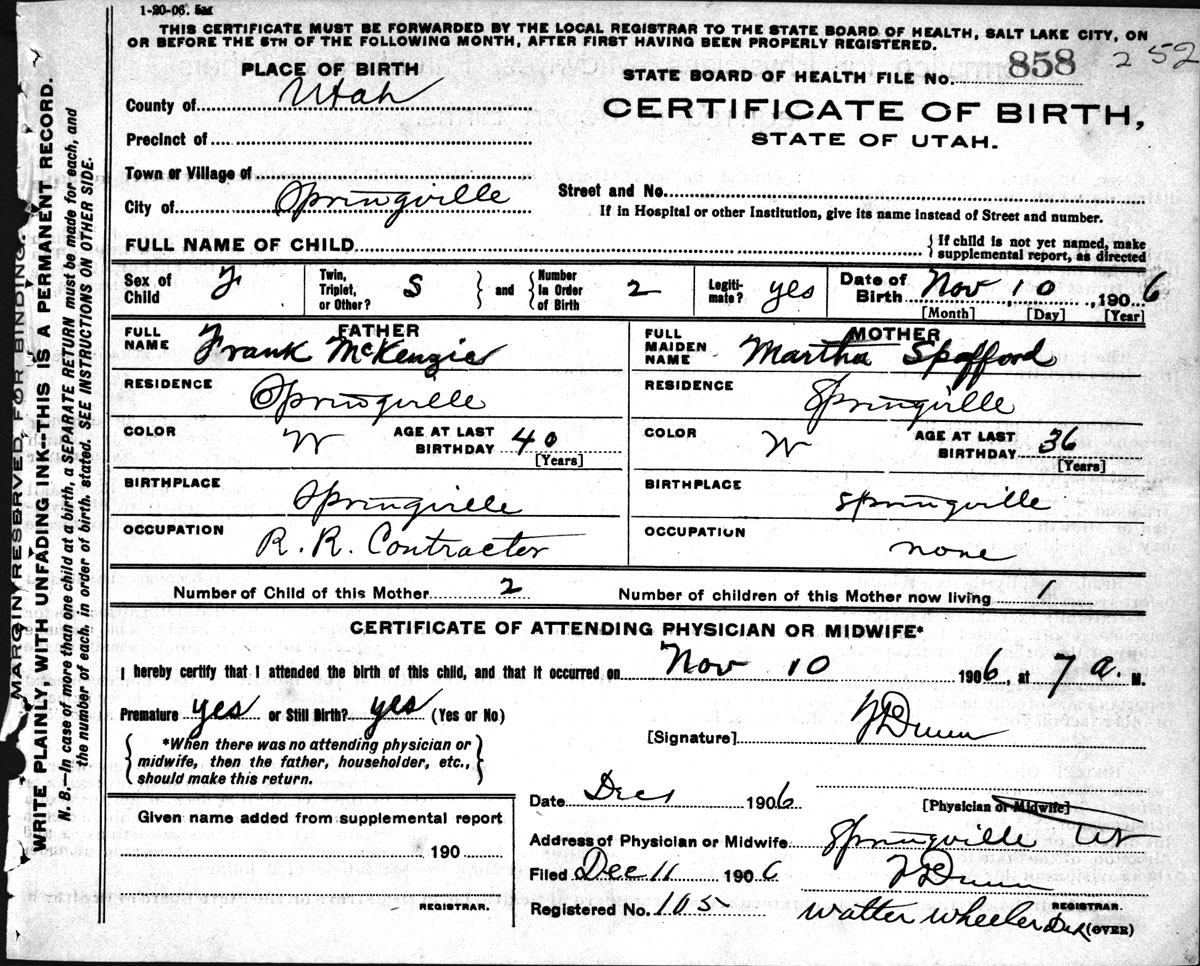 1-20-06.
THIS CERTIFICATE MUST BE FORWARDED BY THE LOCAL REGISTRAR TO THE STATE BOARD OF HEALTH, SALT LAKE CITY, ON
OR BEFORE THE 5TH OF THE FOLLOWING MONTH, AFTER FIRST HAVING BEEN PROPERLY REGISTERED.
252
PLACE OF BIRTH
STATE BOARD OF HEALTH FILE NO. 858
County of Utah
CERTIFICATE OF BIRTH,
STATE OF UTAH.
Precinct of
Town or Village of
City of Springville
Street and No.
If in Hospital or other Institution, give its name instead of Street and number.
FULL NAME OF CHILD
{If child is not yet named, make
supplemental report, as directed
Sex of Child F
Twin, Triplet, or Other? S } and { Number in Order of Birth 2
Legitimate? yes
Date of Birth Nov 10, 1906
[Month] [Day] [Year]
FATHER
FULL NAME Frank McKenzie
RESIDENCE Springville
COLOR W AGE AT LAST BIRTHDAY 40
[Years]
BIRTHPLACE Springville
OCCUPATION R. R. Contractor
MOTHER
FULL MAIDEN NAME Martha Spafford
RESIDENCE Springville
COLOR W AGE AT LAST BIRTHDAY 36
[Years]
BIRTHPLACE Springville
OCCUPATION none
Number of Child of this Mother 2 Number of children of this Mother now living 1
CERTIFICATE OF ATTENDING PHYSICIAN OR MIDWIFE*
I hereby certify that I attended the birth of this child, and that it occurred on Nov 10 1906, at 7 a. M.
Premature yes or Still Birth? yes (Yes or No)
{*When there was no attending physician or
midwife, then the father, householder, etc.,
should make this return.}
[Signature] Dunn
Date Dec 1 1906
[Physician or Midwife]
Given name added from supplemental report
190
REGISTRAR.
Address of Physician or Midwife Springville Ut
Filed Dec 11 1906 Dunn
REGISTRAR.
Registered No. 105 Walter Wheeler Dep
(OVER)
MARGIN RESERVED FOR BINDING.
WRITE PLAINLY, WITH UNFADING INK--THIS IS A PERMANENT RECORD.
N. B.—In case of more than one child at a birth, a SEPARATE RETURN must be made for each, and
the number of each, in order of birth, stated. SEE INSTRUCTIONS ON OTHER SIDE.